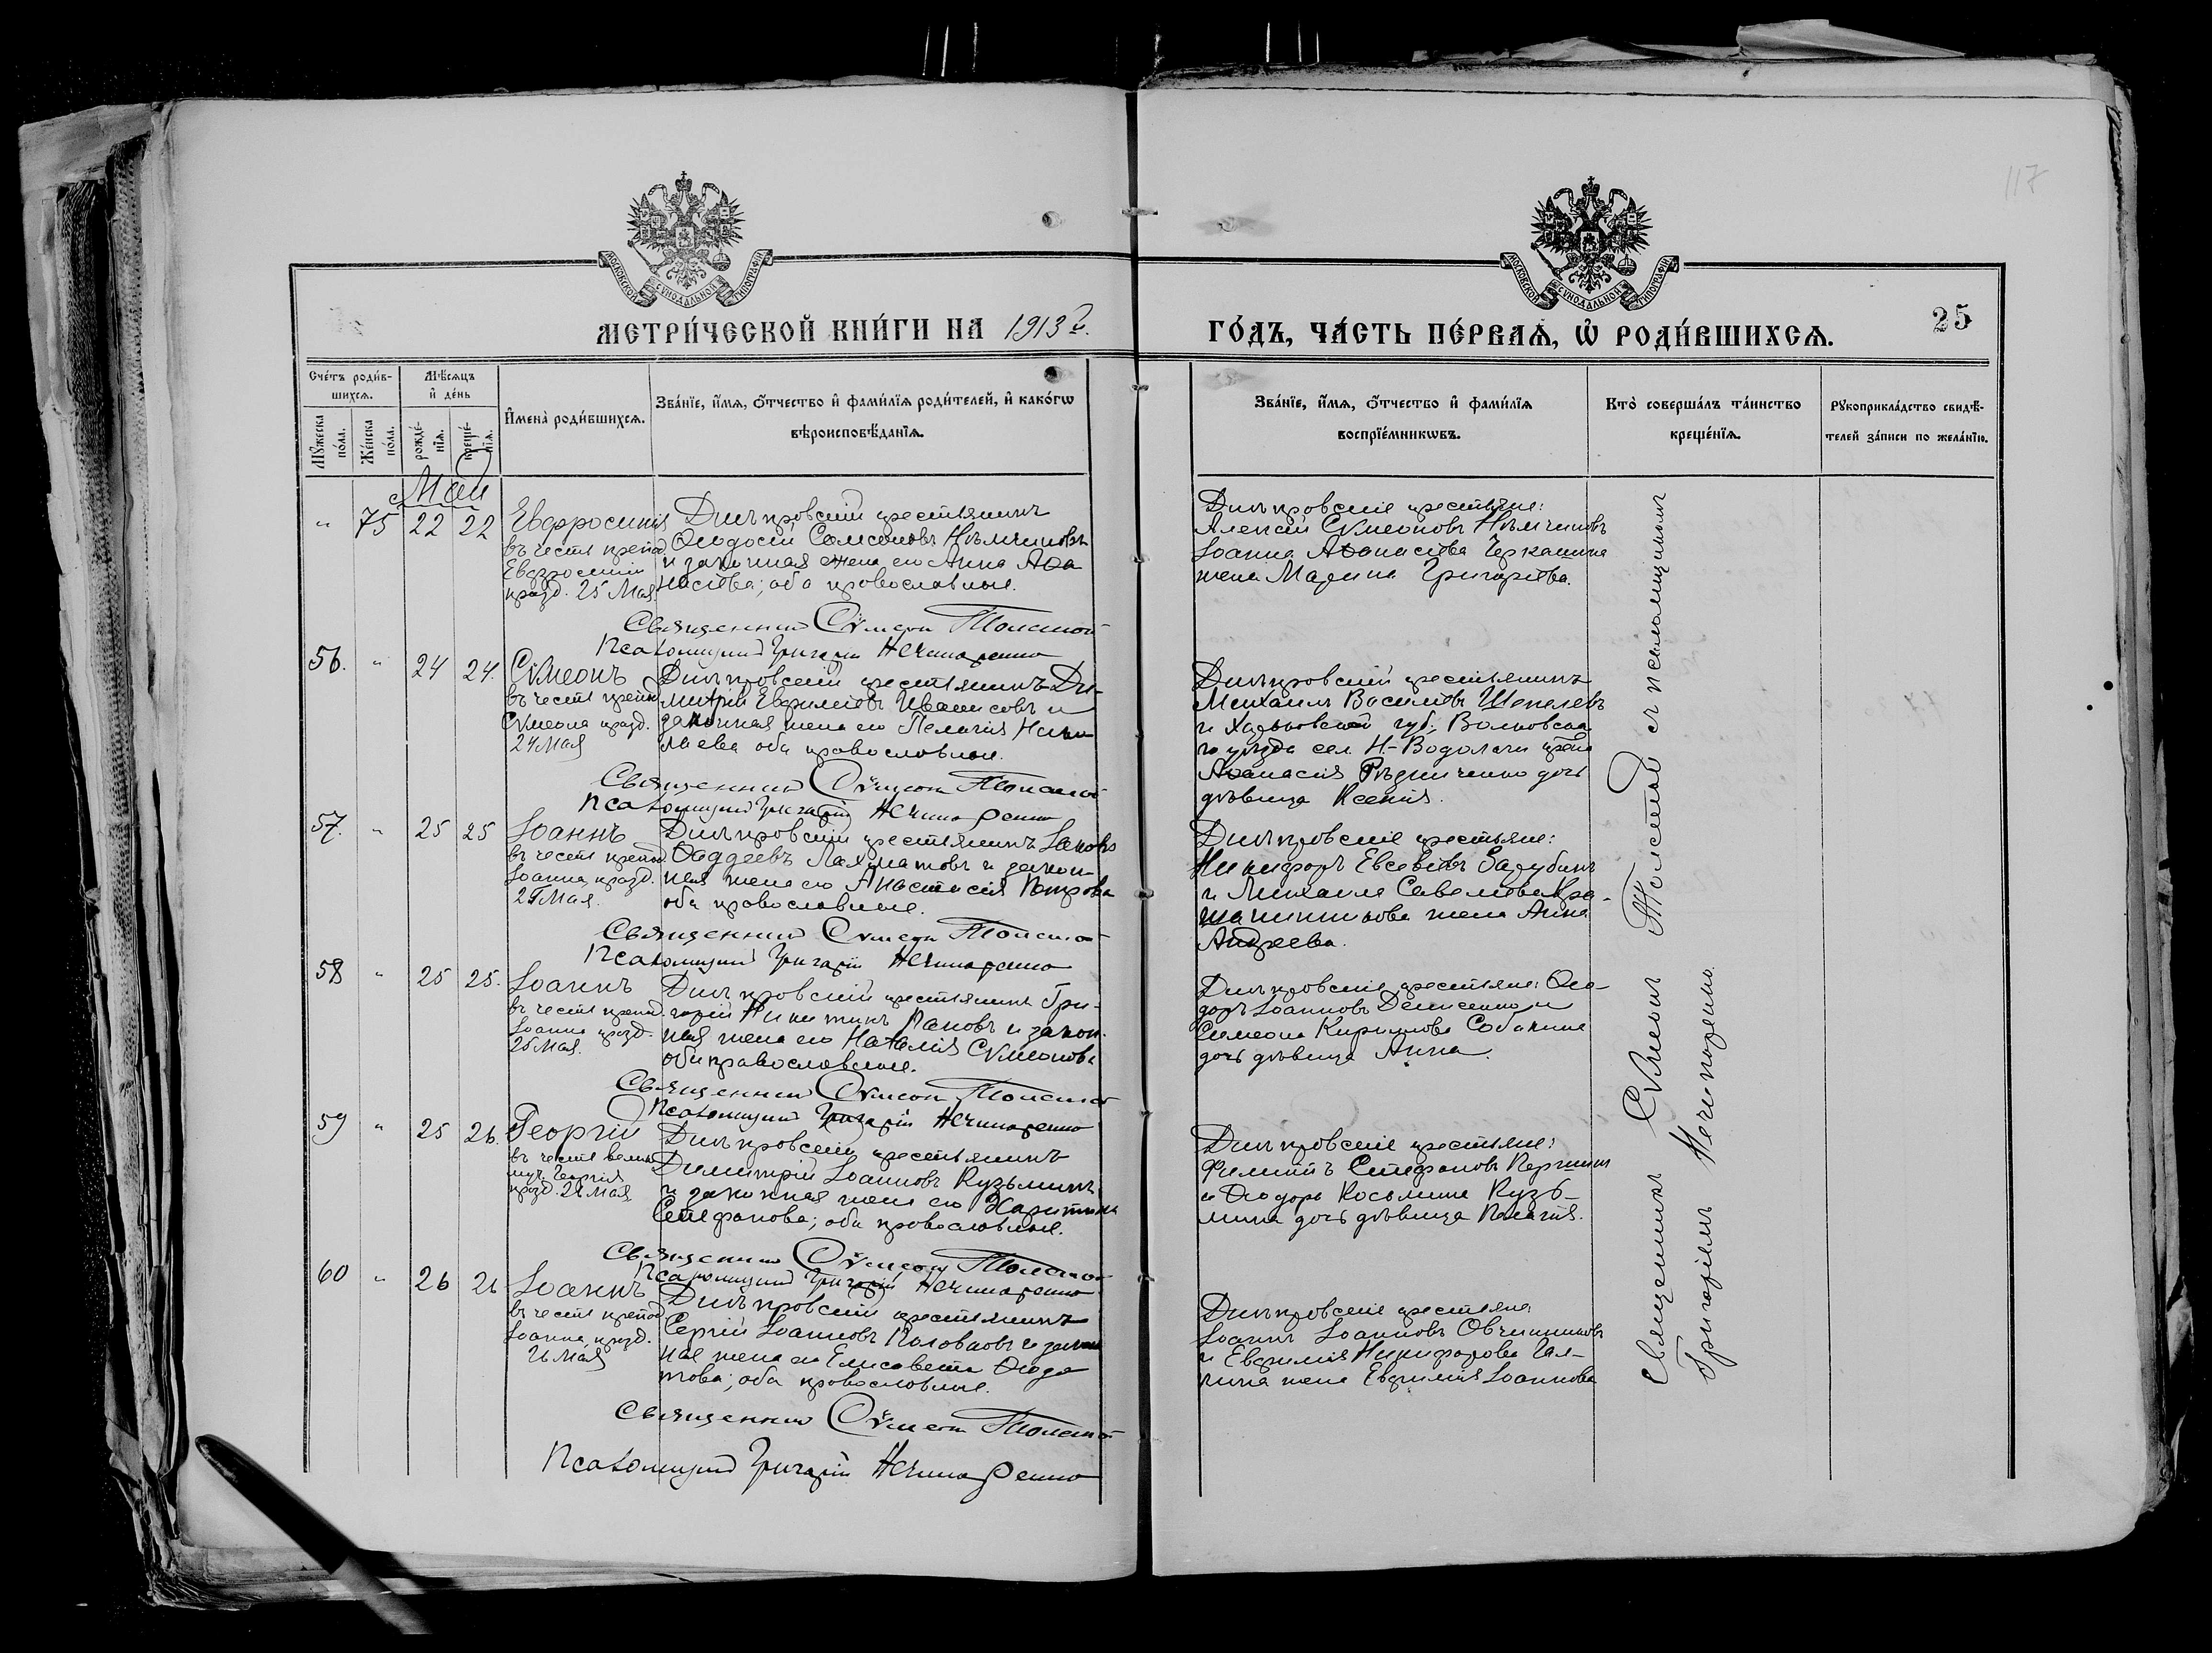 117
МОСКОВСКОЙ СУНОДАЛЬНОЙ ТИПОГРАФІИ
МОСКОВСКОЙ СУНОДАЛЬНОЙ ТИПОГРАФІИ
МЕТРИ́ЧЕСКОЙ КНИ́ГИ НА 1913 г.
ГО́ДЪ, ЧА́СТЬ ПЕ́РВАѦ, Ѽ РОДИ́ВШИХСѦ.
25
Сче́тъ роди́в-
шихсѧ.
Мꙋ́жеска
по́ла.
Же́нска
по́ла.
Мѣ́сѧцъ
и҆ де́нь
рожде́-
нїѧ.
креще́-
нїѧ.
И҆мена̀ роди́вшихсѧ.
Зва́нїе, и҆́мѧ, ѻ҆́тчество и҆ фами́лїѧ роди́телей, и҆ како́гѡ
вѣроисповѣ́данїѧ.
Зва́нїе, и҆́мѧ, ѻ҆́тчество и҆ фами́лїѧ
воспрїе́мникѡвъ.
Кто̀ соверша́лъ та́инство
креще́нїѧ.
Рꙋкоприкла́дство свидѣ́-
телей за́писи по жела́нїю.
Май
" 75 22 22
Евфросинія
въ честь препод.
Евфросиніи
празд. 25 Мая.
Днѣпровскій крестьянинъ
Ѳеодосій Самсоновъ Нѣмчиновъ
и законная жена его Анна Аѳа
насіева; оба православные.
Священникъ Сѵмеонъ Толстой
Псаломщикъ Григорій Нечипоренко
Днѣпровскіе крестьяне:
Алексій Сѵмеоновъ Нѣмчиновъ
Іоанна Аѳанасіева Черкашина
жена Марина Григоріева.
56. " 24 24.
Сѵмеонъ
въ честь препод.
Сѵмеона празд.
24 Мая
Днѣпровскій крестьянинъ Ди-
митрій Евфиміевъ и
законная жена его Пелагія Нико
лаева оба православные.
Священникъ Сѵмеонъ Толстой
Псаломщикъ Григорій Нечипоренко
Днѣпровскій крестьянинъ
Михаилъ Василіевъ Шепелевъ
и Харьковской губ., Волковска
го уѣзда сел. Н.-Водолаги крест.
Аѳанасія Рѣдниченко дочь
дѣвица Ксенія.
57. " 25 25
Іоаннъ
въ честь препод.
Іоанна, празд.
25 Мая.
Днѣпровскій крестьянинъ Іаковъ
Ѳаддеевъ Лахматовъ и закон-
ная жена его Анастасія Петрова
оба православные.
Священникъ Сѵмеонъ Толстой
Псаломщикъ Григорій Нечипоренко
Днѣпровскіе крестьяне:
Никифоръ Евсевіевъ Зарубинъ
и Михаила Савелова Кра-
шанинникова жена Анна
Андреева.
58 " 25 25.
Іоаннъ
въ честь препод.
Іоанна празд.
25 Мая.
Днѣпровскій крестьянинъ Гри-
горій Никитинъ Пановъ и закон.
ная жена его Наталія Сѵмеонова
оба православные.
Священникъ Сѵмеонъ Толстой
Псаломщикъ Григорій Нечипоренко
Днѣпровскіе крестьяне: Ѳео-
доръ Іоанновъ Денисенко и
Симеона Кирилова Собакина
дочь дѣвица Анна.
59 " 25 26.
Георгій
въ честь велик.
муч. Георгія
празд. 26 Мая
Днѣпровскій крестьянинъ
Димитрій Іоанновъ Кузьминъ
и законная жена его Харитина
Стефанова; оба православные.
Священникъ Сѵмеонъ Толстой
Псаломщикъ Григорій Нечипоренко
Днѣпровскіе крестьяне:
Филиппъ Стефановъ
и Ѳеодора Косьмина Кузь-
мина дочь дѣвица Пелагія.
60 " 26 26
Іоаннъ
въ честь препод.
Іоанна празд.
26 Мая
Днѣпровскій крестьянинъ
Сергій Іоанновъ Половковъ и закон
ная жена его Елисавета Ѳедо
това; оба православные.
Священникъ Сѵмеонъ Толстой
Псаломщикъ Григорій Нечипоренко
Днѣпровскіе крестьяне
Іоаннъ Іоанновъ Овчинниковъ
и Евфимія Никифорова Гал-
кина жена Евфимія Іоаннова
Священникъ Сѵмеонъ Толстой съ псаломщикомъ
Григоріемъ Нечипоренко.